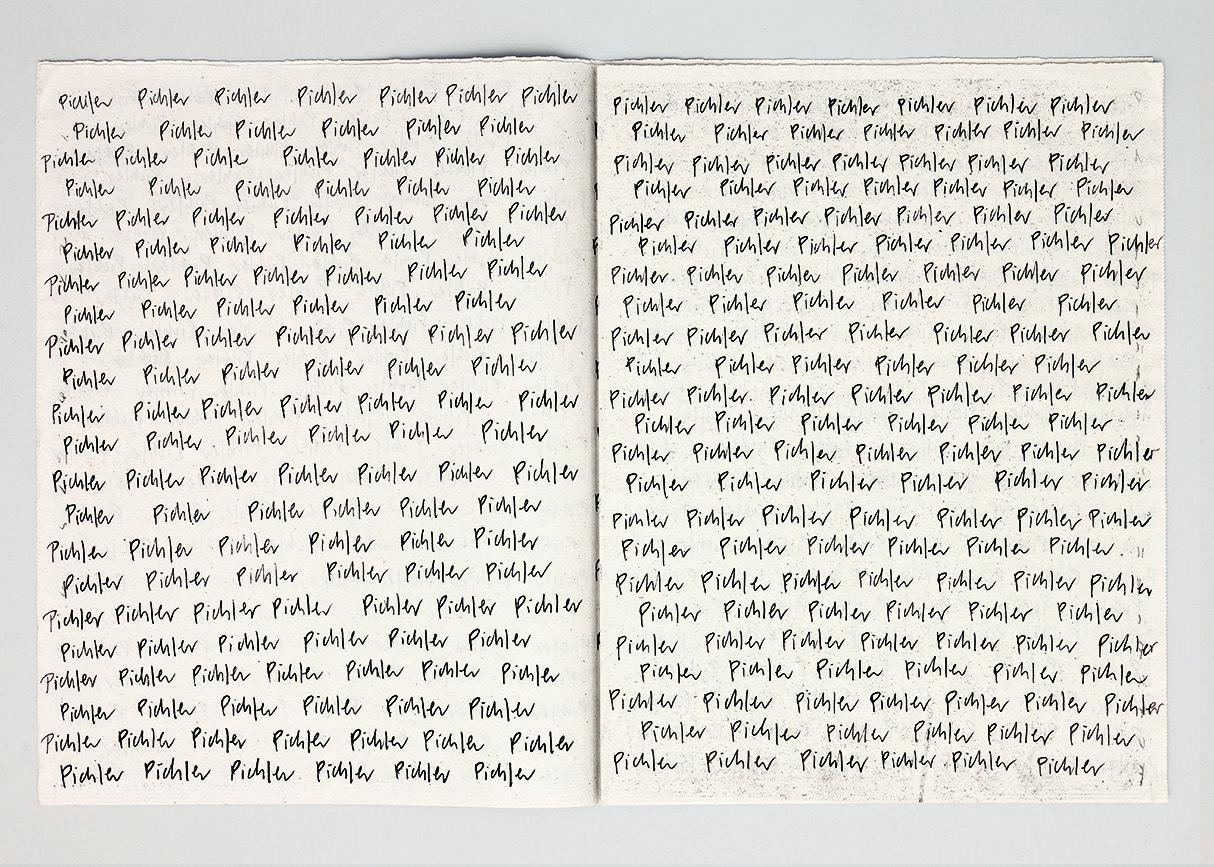 Pichler Pichler Pichler Pichler Pichler Pichler Pichler
Pichler Pichler Pichler Pichler Pichler Pichler
Pichler Pichler Pichler Pichler Pichler Pichler Pichler
Pichler Pichler Pichler Pichler Pichler Pichler
Pichler Pichler Pichler Pichler Pichler Pichler Pichler
Pichler Pichler Pichler Pichler Pichler Pichler
Pichler Pichler Pichler Pichler Pichler Pichler Pichler
Pichler Pichler Pichler Pichler Pichler Pichler
Pichler Pichler Pichler Pichler Pichler Pichler Pichler
Pichler Pichler Pichler Pichler Pichler Pichler
Pichler Pichler Pichler Pichler Pichler Pichler Pichler
Pichler Pichler Pichler Pichler Pichler Pichler
Pichler Pichler Pichler Pichler Pichler Pichler Pichler
Pichler Pichler Pichler Pichler Pichler Pichler
Pichler Pichler Pichler Pichler Pichler Pichler
Pichler Pichler Pichler Pichler Pichler Pichler
Pichler Pichler Pichler Pichler Pichler Pichler Pichler
Pichler Pichler Pichler Pichler Pichler Pichler
Pichler Pichler Pichler Pichler Pichler Pichler Pichler
Pichler Pichler Pichler Pichler Pichler Pichler
Pichler Pichler Pichler Pichler Pichler Pichler Pichler
Pichler Pichler Pichler Pichler Pichler Pichler
Pichler Pichler Pichler Pichler Pichler Pichler Pichler
Pichler Pichler Pichler Pichler Pichler Pichler Pichler
Pichler Pichler Pichler Pichler Pichler Pichler Pichler
Pichler Pichler Pichler Pichler Pichler Pichler Pichler
Pichler Pichler Pichler Pichler Pichler Pichler Pichler
Pichler Pichler Pichler Pichler Pichler Pichler Pichler
Pichler Pichler Pichler Pichler Pichler Pichler Pichler
Pichler Pichler Pichler Pichler Pichler Pichler
Pichler Pichler Pichler Pichler Pichler Pichler Pichler
Pichler Pichler Pichler Pichler Pichler Pichler
Pichler Pichler Pichler Pichler Pichler Pichler Pichler
Pichler Pichler Pichler Pichler Pichler Pichler
Pichler Pichler Pichler Pichler Pichler Pichler Pichler
Pichler Pichler Pichler Pichler Pichler Pichler
Pichler Pichler Pichler Pichler Pichler Pichler Pichler
Pichler Pichler Pichler Pichler Pichler Pichler
Pichler Pichler Pichler Pichler Pichler Pichler Pichler
Pichler Pichler Pichler Pichler Pichler Pichler
Pichler Pichler Pichler Pichler Pichler Pichler Pichler
Pichler Pichler Pichler Pichler Pichler Pichler
Pichler Pichler Pichler Pichler Pichler Pichler Pichler
Pichler Pichler Pichler Pichler Pichler Pichler
Pichler Pichler Pichler Pichler Pichler Pichler